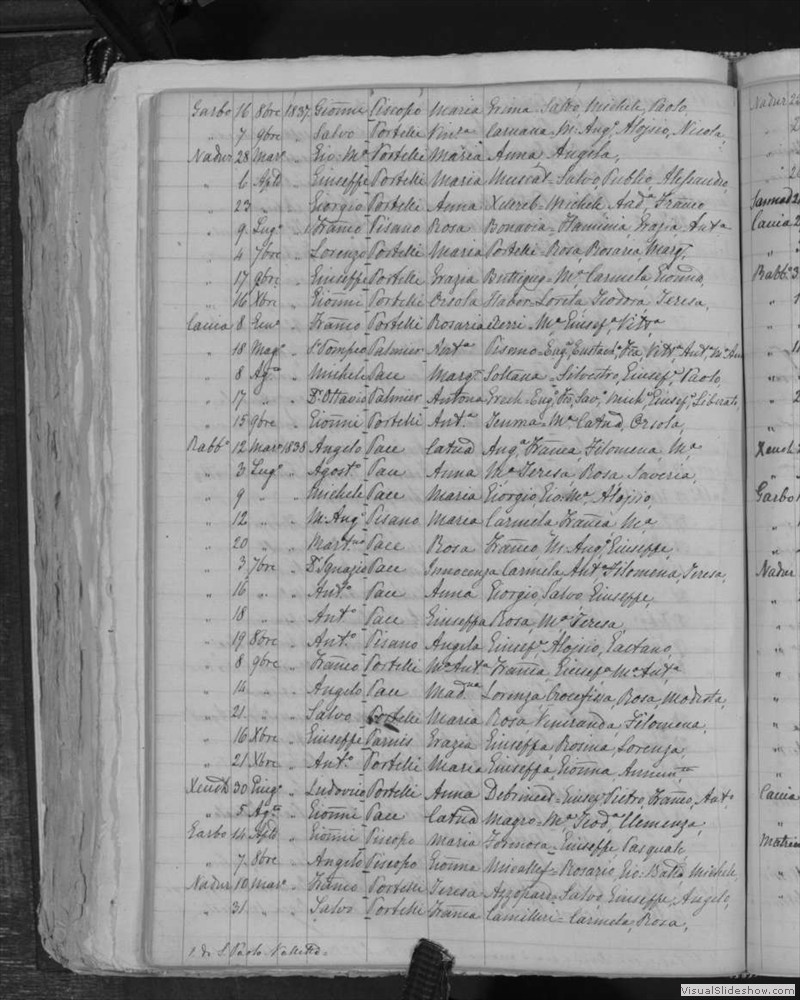 Garbo 16 8bre 1837 Gionni Piscopo Maria Grima Salvo, Michele, Paolo
" 7 9bre " Salvo Portelli Vinza Caruana M: Ang, Alojsio, Nicola,
Nadur 28 Marz " Gio: Ma Portelli Maria Anna Angela,
" 6 Aple " Giuseppe Portelli Maria Muscat Salvo, Publio, Alessandro,
" 23 " " Giorgio Portelli Anna Xuereb Michele And Franco
" 9 Lugo " Franco Pisano Rosa Bonavia Flaminia Grazia Anta
" 4 7bre " Lorenzo Portelli Maria Portelli Rosa, Rosaria, Marg
" 17 9bre " Giuseppe Portelli Grazia Buttigieg Ma, Carmela Gionna,
" 16 Xbre " Gionni Portelli Orsola Habor Loreta Teodora Teresa,
Caccia 8 " Franco Portelli Rosaria Ma Giusefa Vitta
" 18 Mago " Pompeo Palmier Anta Pisano Euga, Eustacha, Vitta, Anta, Ma
" 8 Ago " Michele Pace Marga Soltana Silvestro, Giusef, Paolo,
" 17 " " Dr Ottavio Palmier Antona Euga, Salv, Mich, Giusef, Liberato
" 15 9bre " Gionni Portelli Anta Ma Catna, Orsola,
Rabbo 12 Marzo 1838 Angelo Pace Catna Anga, Franca, Filomena, Ma
" 3 Lugo " Agosto Pace Anna Ma Teresa, Rosa Saveria,
" 9 " " Michele Pace Maria Giorgio, Gio: Ma, Alojsio,
" 12 " " M: Ango Pisano Maria Carmela Franca Ma
" 20 " " Martno Pace Rosa Franco, M: Ang, Giuseppe,
" 3 7bre " Dr Ignazio Pace Innocenza Carmela, Anta Filomena, Teresa,
" 16 " " Anto Pace Anna Giorgio, Salvo, Giuseppe,
" 18 " " Anto Pace Giuseppa Rosa, Ma Teresa,
" 19 8bre " Anto Pisano Angela Giusefo Alojsio, Gaetano,
" 8 9bre " Franco Portelli Ma Anta Franca, Giusefa Ma Anta
" 14 " " Angelo Pace Madna Lorenza, Crocefissa, Rosa, Modesta,
" 21 " " Salvo Portelli Maria Rosa, Veneranda Filomena,
" 16 Xbre " Giuseppe Parnis Grazia Giuseppa Rosina, Lorenza
" 21 Xbre " Anto Portelli Maria Giuseppa, Gionna,
Xeuch 30 " Ludovico Portelli Anna Debrincat Giusep Pietro, Franco, Anto
" 5 Ago " Gionni Pace Catna Magro Ma Teoda Clemenza,
Garbo 14 Aple " Gionni Piscopo Maria Formosa Giuseppe Pasquale
" 7 8bre " Angelo Piscopo Gionna Micallef Rosario, Gio: Batta, Michele,
Nadur 10 Marzo " Franco Portelli Teresa Azzopardi Salvo, Giuseppe, Angelo,
" 31 " " Salvo Portelli Franca Camilleri Carmela, Rosa,
1. di S. Paolo Valletta
Nadur
Sannat
Caccia
Rabbo 3
Xeuch
Garbo
Nadur
Caccia
VisualSlideshow.com